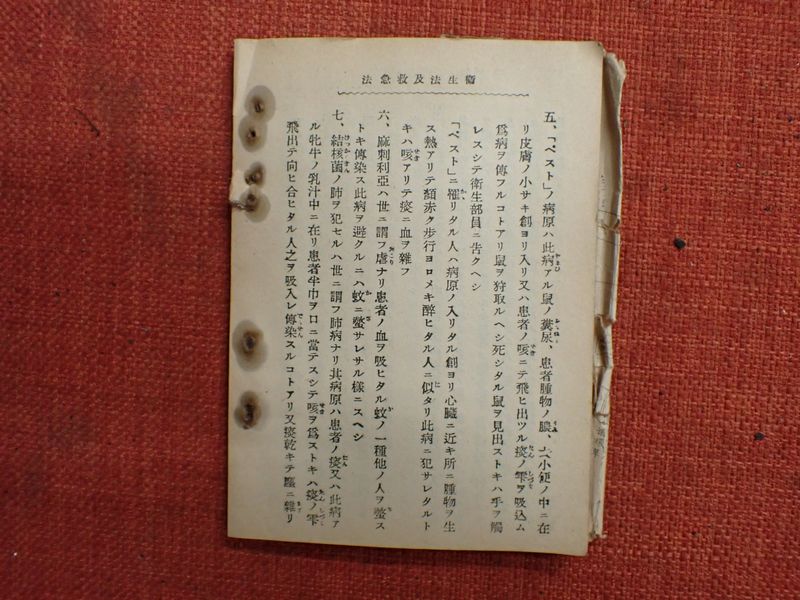 衞生法及救急法
五、「ペスト」ノ病原ハ此病アル鼠ノ糞尿、患者腫物ノ膿、大小便ノ中ニ在
リ皮膚ノ小サキ創ヨリ入リ又ハ患者ノ咳ニテ飛ヒ出ツル痰ノ雫ヲ吸込ム
爲病ヲ傳フルコトアリ鼠ヲ狩取ルヘシ死シタル鼠ヲ見出ストキハ手ヲ觸
レスシテ衞生部員ニ告クヘシ
「ペスト」ニ罹リタル人ハ病原ノ入リタル創ヨリ心臟ニ近キ所ニ腫物ヲ生
ス熱アリテ頬赤ク歩行ヨロメキ醉ヒタル人ニ似タリ此病ニ犯サレタルト
キハ咳アリテ痰ニ血ヲ雜フ
六、麻刺利亞ハ世ニ謂フ瘧ナリ患者ノ血ヲ吸ヒタル蚊ノ一種他ノ人ヲ螫ス
トキ傳染ス此病ヲ避クルニハ蚊ニ螫サレサル樣ニスヘシ
七、結核菌ノ肺ヲ犯セルハ世ニ謂フ肺病ナリ其病原ハ患者ノ痰又ハ此病ア
ル牝牛ノ乳汁中ニ在リ患者半巾ヲ口ニ當テスシテ咳ヲ爲ストキハ痰ノ雫
飛出テ向ヒ合ヒタル人之ヲ吸入レ傳染スルコトアリ又痰乾キテ塵ニ雜リ